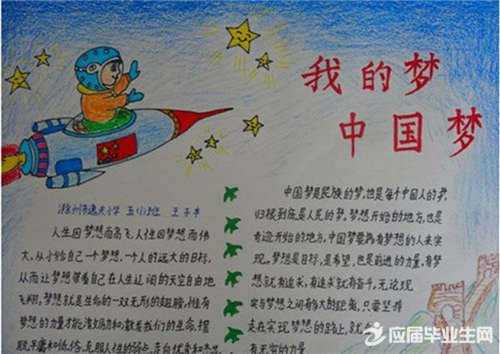 我的梦
中国梦
滁州市逸夫小学 五(1)班 王子
人生因梦想而高飞,人性因梦想而伟
大,从小给自己一个梦想,一个人的远大的目标,
从而让梦想带着自己在人生辽阔的天空自由地
飞翔,梦想就是生命的一双无形的翅膀,惟有
梦想的力量才能
中国梦是民族的梦,也是每个中国人的梦,
归根到底是人民的梦,梦想开始的地方,也是
奇迹开始的地方,中国梦需要有梦想的人来实
现。梦想是目标,是希望,也是前进的力量,有梦
想就有追求,有追求就有奋斗,无论现
实与梦想之间有多大的距离,只需坚持
走在实现梦想的路上,就
有无穷的力量
应届毕业生网